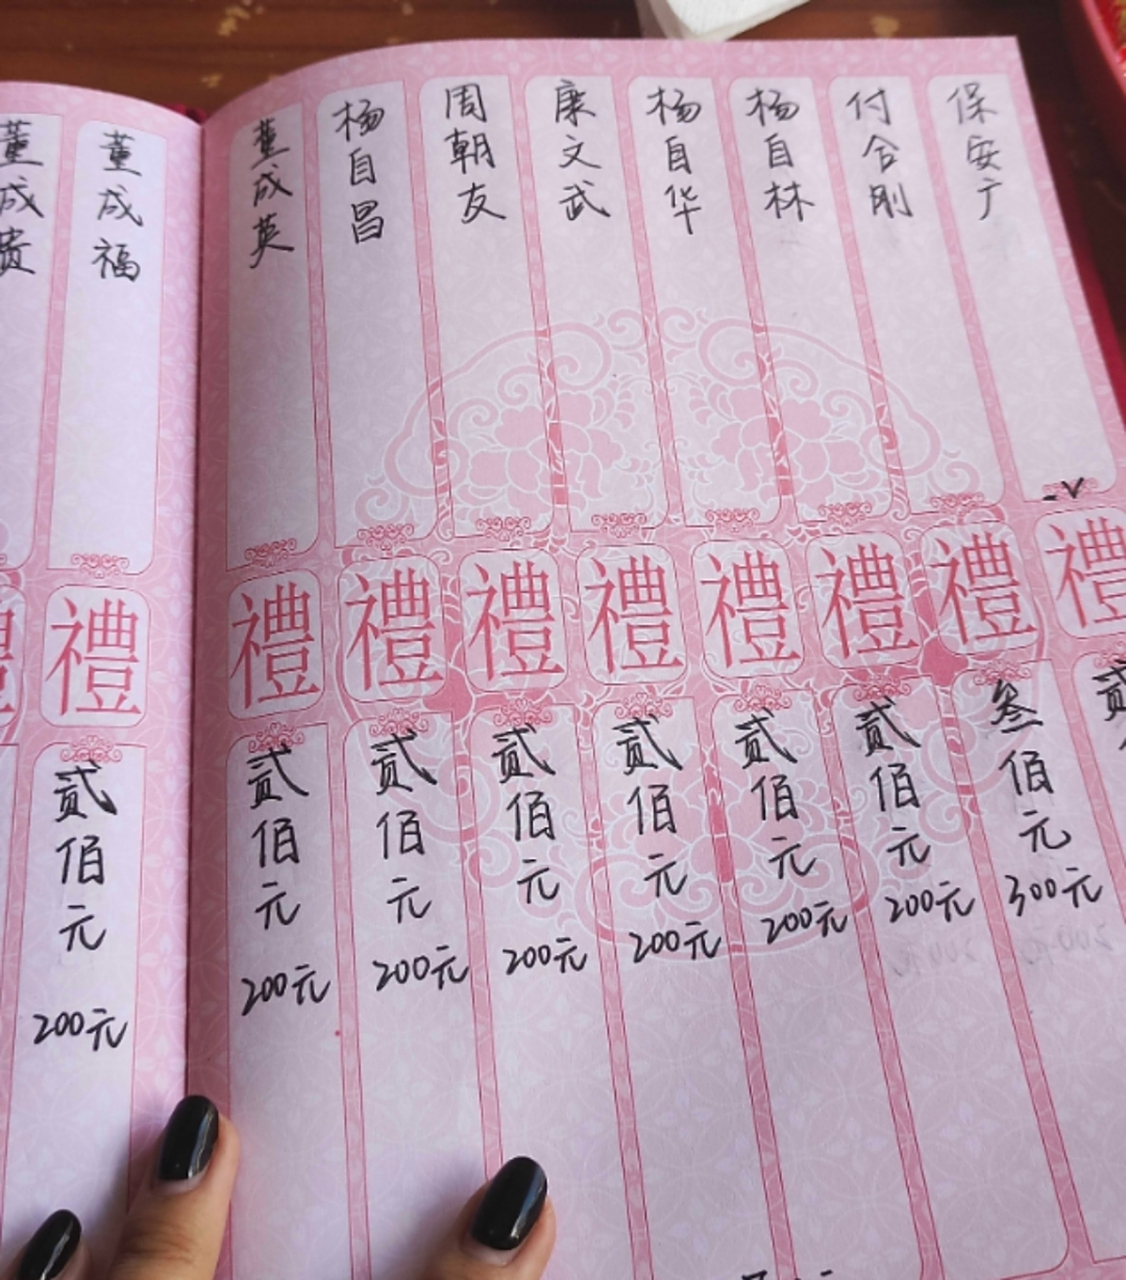 董成贵
董成福
董成英
杨自昌
周朝友
廉文武
杨自华
杨自林
付合刚
保安广
禮
禮
禮
禮
禮
禮
禮
禮
禮
贰佰元
200元
贰佰元
200元
贰佰元
200元
贰佰元
200元
贰佰元
200元
贰佰元
200元
贰佰元
200元
叁佰元
300元
贰